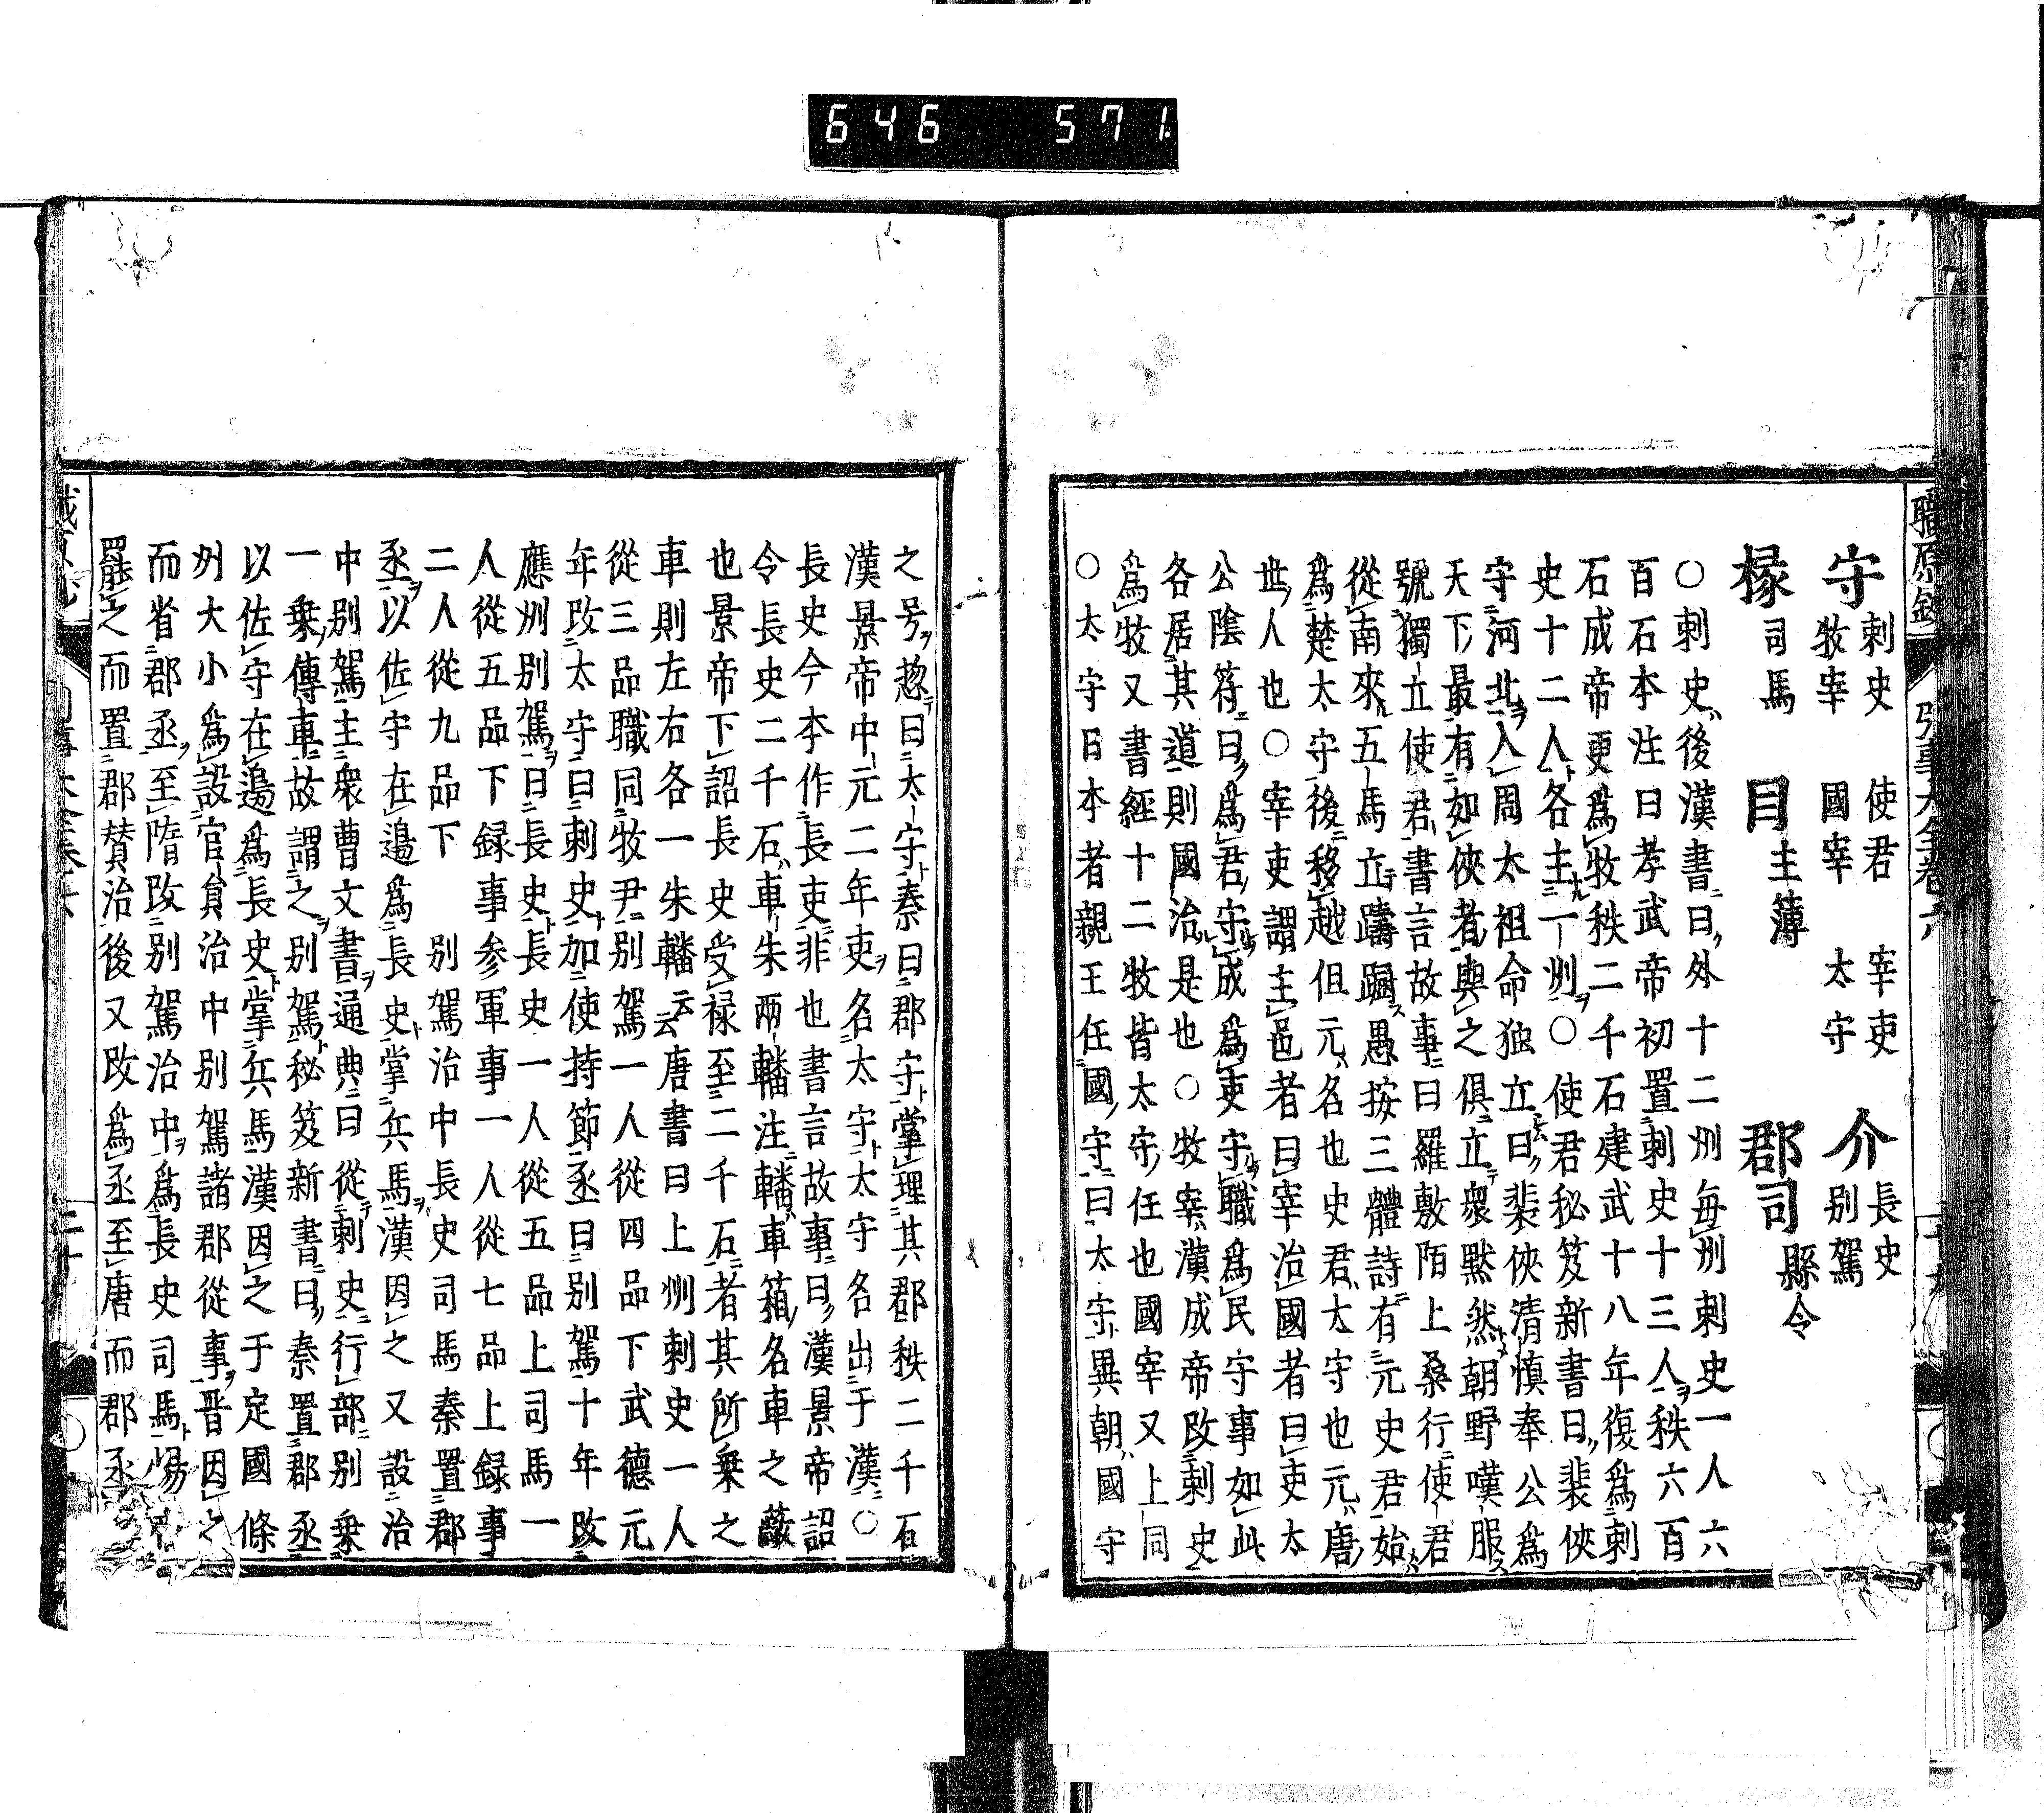 646 571
職原鈔
引事大全卷六
守 刺史 使君 宰吏 牧宰 國宰 太守 介 長史 別駕
掾 司馬 目 主簿 郡司 縣令
○刺史後漢書曰外十二州每州刺史一人六
百石本注曰孝武帝初置刺史十三人秩六百
石成帝更爲牧秩二千石建武十八年復爲刺
史十二人各主一州○使君秘笈新書曰裴俠
守河北入周太祖命独立曰裴俠清慎奉公爲
天下最有如俠者與之俱立衆默然朝野嘆服
號獨立使君書言故事曰羅敷陌上桑行使君
從南來五馬立躊躕愚按三體詩有元史君始
爲楚太守後移越但元名也史君太守也元唐
世人也○宰吏謂主邑者曰宰治國者曰吏太
公陰符曰爲君守成爲吏守職爲民守事如此
各居其道則國治是也○牧宰漢成帝改刺史
爲牧又書經十二牧皆太守任也國宰又上同
○太守日本者親王任國守曰太守異朝國守
之号惣曰太守秦曰郡守掌理其郡秩二千石
漢景帝中元二年吏名太守太守名出于漢○
長史今本作長吏非也書言故事曰漢景帝詔
令長史二千石車朱兩轓注轓車箱名車之蔽
也景帝下詔長史受禄至二千石者其所乗之
車則左右各一朱轓云云唐書曰上州刺史一人
從三品職同牧尹別駕一人從四品下武德元
年改太守曰刺史加使持節丞曰別駕十年改
應州別駕曰長史長史一人從五品上司馬一
人從五品下録事参軍事一人從七品上録事
二人從九品下 別駕治中長史司馬秦置郡
丞以佐守在邊爲長史掌兵馬漢因之又設治
中別駕主衆曹文書通典曰從刺史行部別乗
一乗傳車故謂之別駕秘笈新書曰秦置郡丞
以佐守在邊爲長史掌兵馬漢因之于定國條
州大小爲設官貟治中別駕諸郡從事晋因之
而省郡丞至隋改別駕治中爲長史司馬煬
罷之而置郡賛治後又改爲丞至唐而郡丞